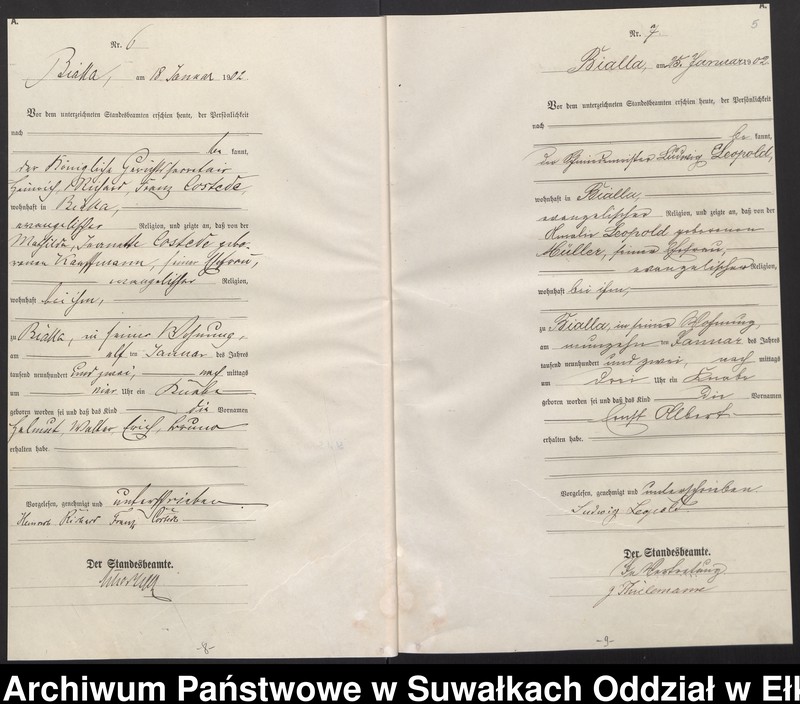 A.
Nr. 6
Bialla, am 18 Januar 1902.
Vor dem unterzeichneten Standesbeamten erschien heute, der Persönlichkeit
nach
be kannt,
der Königliche Gerichtssecretair
Heinrich Richard Franz Costede,
wohnhaft in Bialla,
evangelischer Religion, und zeigte an, daß von der
Mathilde, Jeanette Costede gebo-
renen Kauffmann, seiner Ehefrau,
evangelischer Religion,
wohnhaft bei ihm,
zu Bialla, in seiner Wohnung,
am elf ten Januar des Jahres
tausend neunhundert und zwei, nach mittags
um vier Uhr ein Knabe
geboren worden sei und daß das Kind die Vornamen
Helmut, Walter, Erich, Bruno
erhalten habe.
Vorgelesen, genehmigt und unterschrieben
Heinrich Richard Franz Costede
Der Standesbeamte.
-8-
A.
5
Nr. 7
Bialla, am 25. Januar 1902
Vor dem unterzeichneten Standesbeamten erschien heute, der Persönlichkeit
nach
be kannt,
der Ludwig Leopold,
wohnhaft in Bialla,
evangelischer Religion, und zeigte an, daß von der
Amalie Leopold geborenen
Müller, seiner Ehefrau,
evangelischer Religion,
wohnhaft bei ihm,
zu Bialla, in seiner Wohnung,
am neunzehn ten Januar des Jahres
tausend neunhundert und zwei, nach mittags
um drei Uhr ein Knabe
geboren worden sei und daß das Kind die Vornamen
Ernst Albert
erhalten habe.
Vorgelesen, genehmigt und unterschrieben.
Ludwig Leopold.
Der Standesbeamte.
In Vertretung
Thielemann
-9-
Archiwum Państwowe w Suwałkach Oddział w Ełk